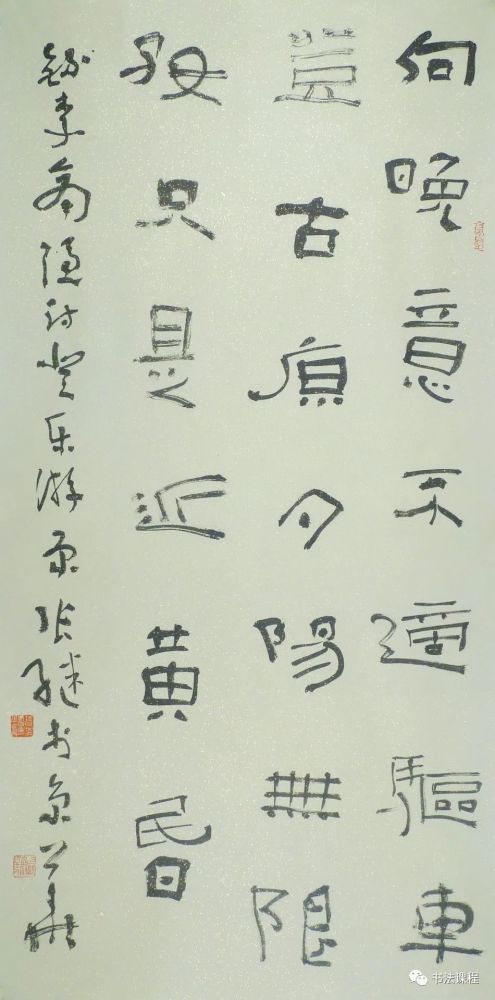 向晚意不適驅車
登古原夕陽無限
好只是近黄昬
錄李商隐诗登乐游原张继书京華
书法课程